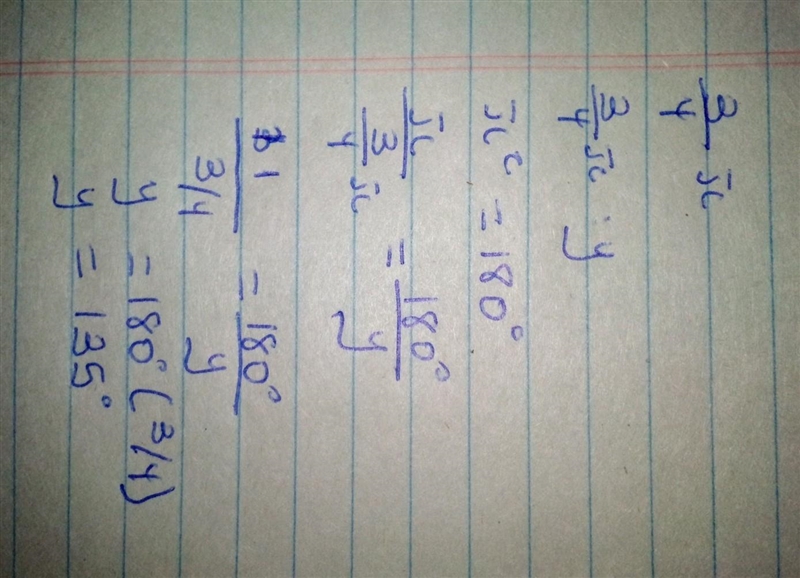 3/4 π
3/4 π : y
π^c = 180°
π / (3/4 π) = 180° / y
1 / (3/4) = 180° / y
y = 180° (3/4)
y = 135°